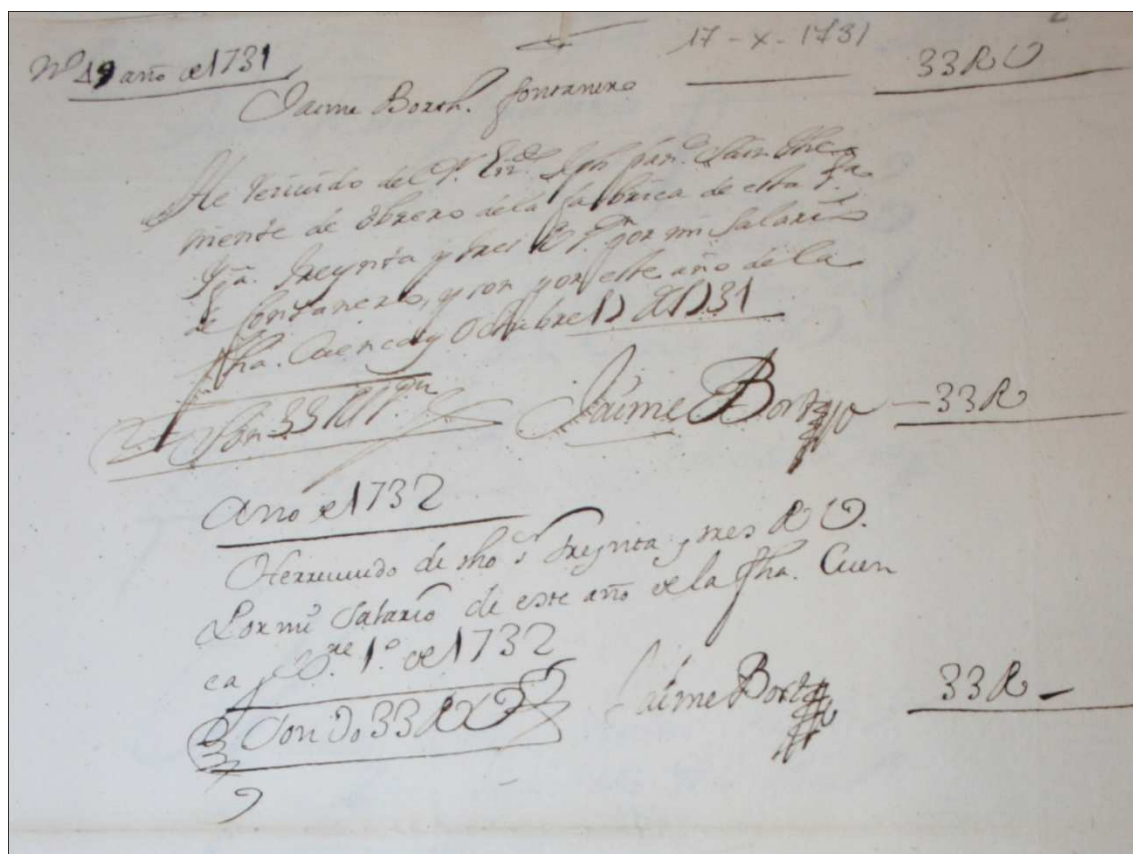 Nº 49 año de 1731
17 - X - 1731
33 R V
Jaime Borth. fontanero
He Reciuido del Sr.
mente de obrero dela fabrica de esta Sta
Yga. treynta y tres Rs por mi Salario
de fontanero, y son por este año de la
fha. Cuenca y Octubre 17 de 1731
Son 33 R
Jaime Bort
33 R
Año de 1732
He rreciuido de dho Sr treynta y tres R V.
Por mi Salario de este año de la fha. Cuen
ca y re 1º. de 1732
Son 33 R V
Jaime Bort
33 R